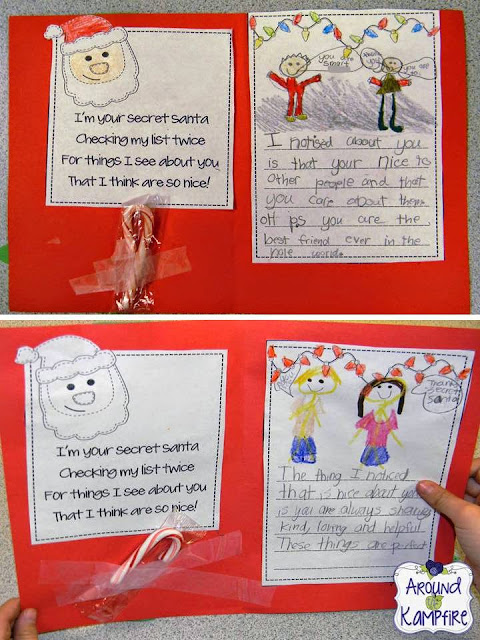 I'm your secret Santa
Checking my list twice
For things I see about you
That I think are so nice!
you are
smart
thank
you
you are
I notised about you
is that your nice to
other people and that
you care about them
oh ps you are the
best friend ever in the
hole world.
I'm your secret Santa
Checking my list twice
For things I see about you
That I think are so nice!
Thanks
secret
santa
The thing I noticed
that is nice about you
is you are always
kind, loving and helpful.
These things are perfect
Around
the
Kampfire